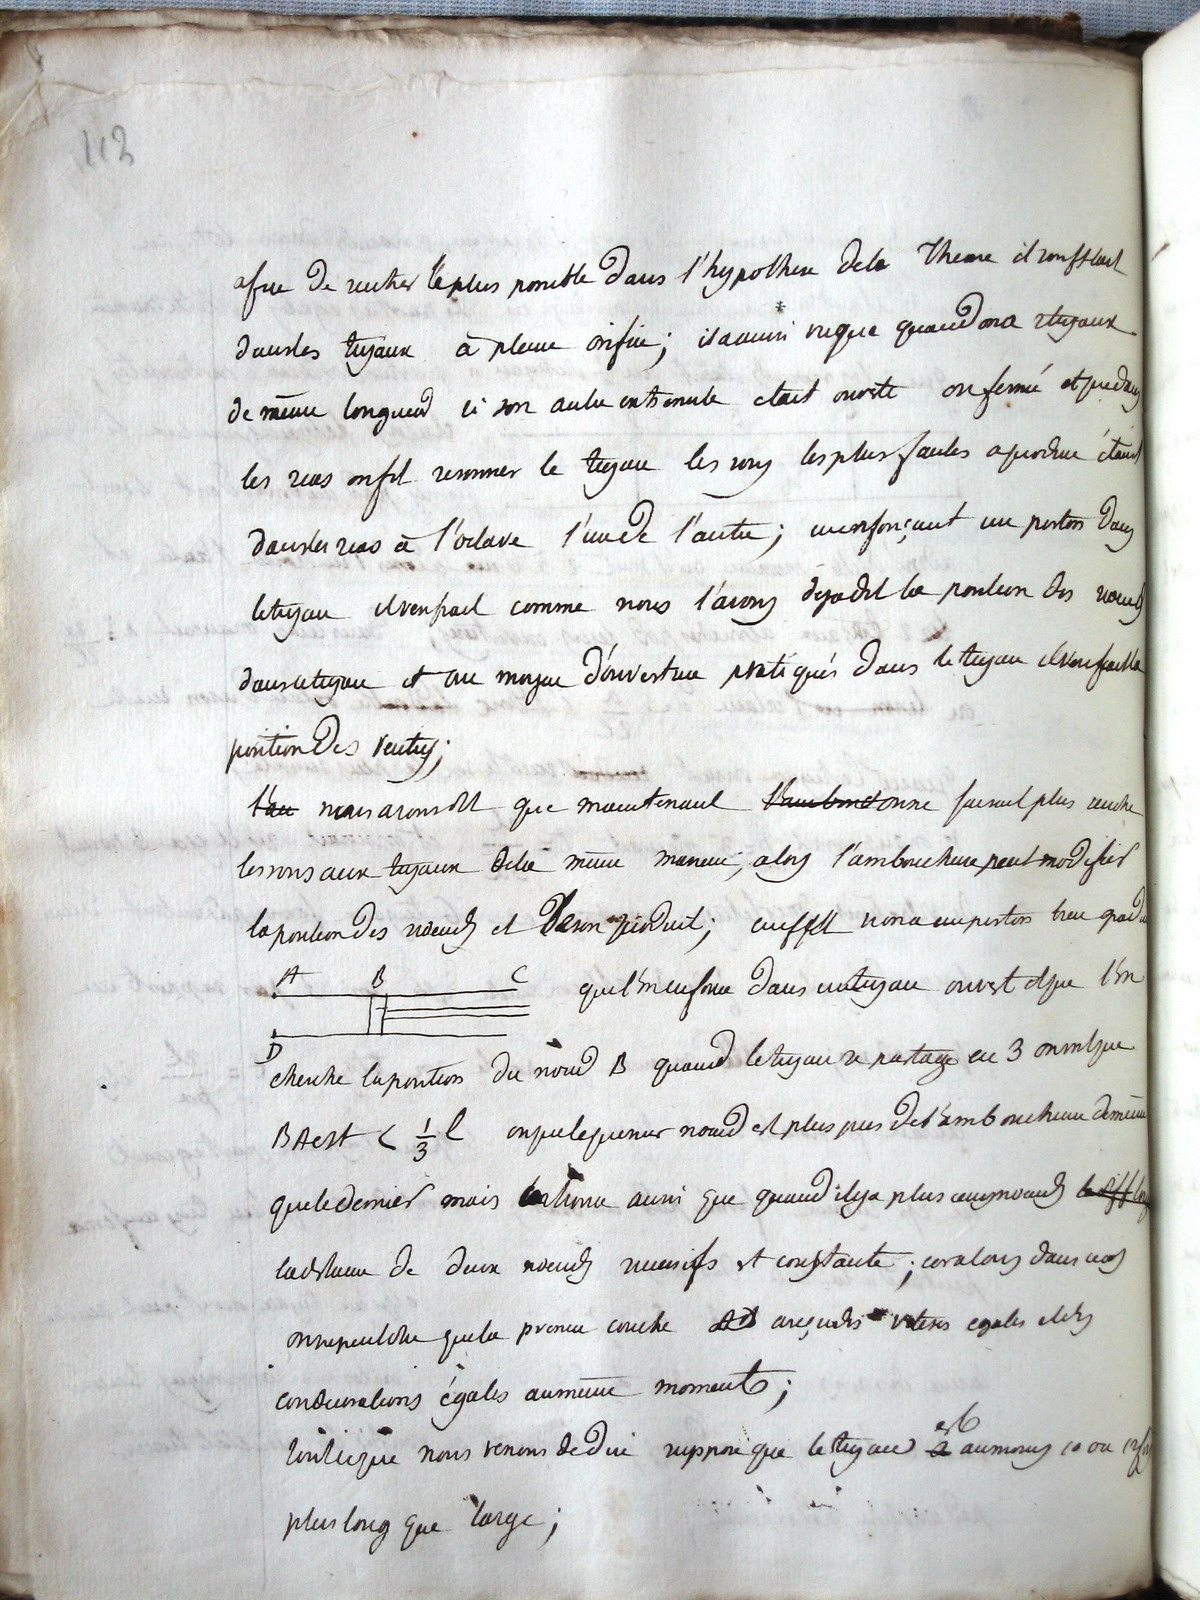 112
afin de rester le plus possible dans l'hypothese dela Theorie il soufflait
dansles tuyaux à pleine orifice; il a aussi vu que quand on a 2 tuyaux
de même longueur si son autre extremité etait ouverte ou fermé et que dans
les 2 cas on fit resonner le tuyau les sons les plus faciles a produire étaient
dansles 2 cas à l'octave l'un de l'autre; en enfonçant un piston dans
letuyau il verifiait comme nous l'avons dejadit la position des noeuds
dansletuyau et au moyen d'ouverture pratiqués dans le tuyau il verifiait la
position des ventres;
nous avons dit que maintenant on ne faisait plus rendre
les sons aux tuyaux dela même maniere, alors l'ambouchure peut modifier
la position des noeuds et le son produit; en effet si on a un piston bien gradué
A B C
D
que l'on enfonce dans un tuyau ouvert et que l'on
cherche la position du noeud B quand le tuyau se partage en 3 on voit que
BA est < 1/3 l on que le premier noeud est plus pres de l'ambouchure de même
que le dernier mais on trouve aussi que quand il y a plusieurs noeuds
la distance de deux noeuds successifs est constante; car alors dans ce cas
on ne peut dire que la premiere couche AD a reçu des vitesses egales et des
condensations égales au même moment;
Tout ce que nous venons de dire suppose que le tuyau est au moins 10 ou 12 fois
plus long que large;